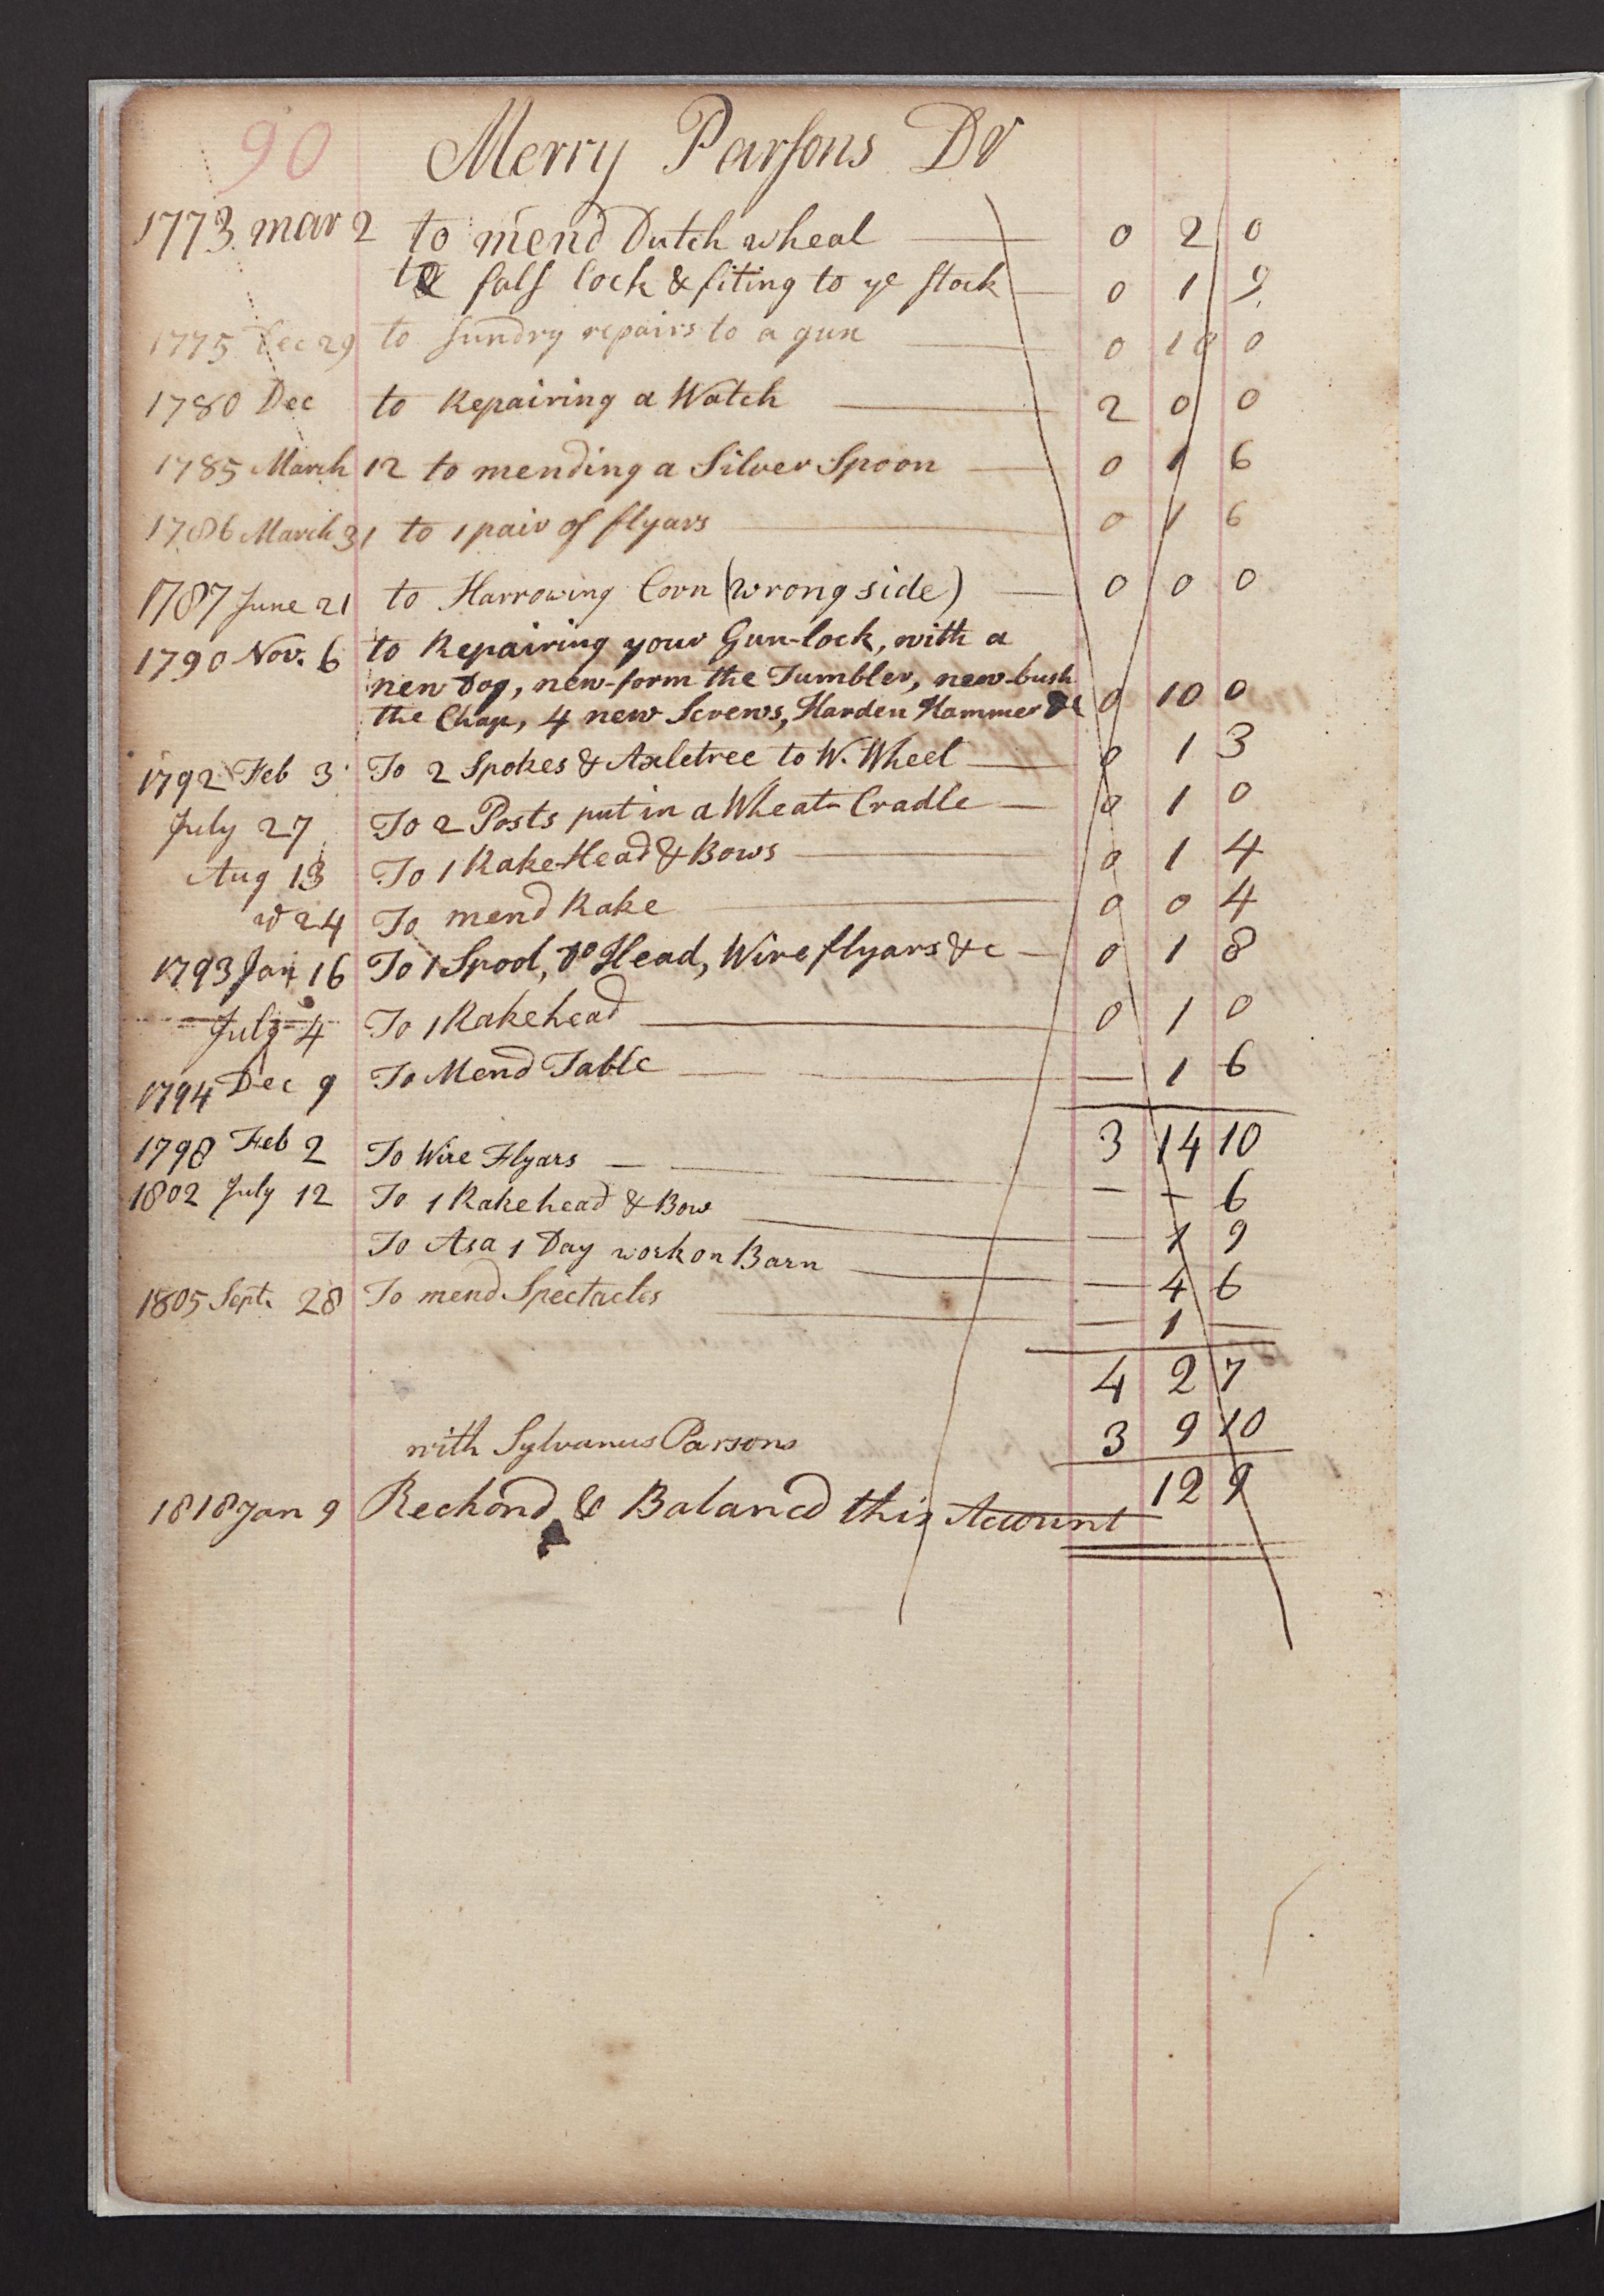 90 Merry Parsons Dr
1773 mar 2 to mend Dutch wheal 0 2 0
to fals lock & fiting to ye stock 0 1 9
1775 Dec 29 to sundry repairs to a gun 0 10 0
1780 Dec to Repairing a Watch 2 0 0
1785 March 12 to mending a Silver Spoon 0 1 6
1786 March 31 to 1 pair of flyars 0 1 6
1787 June 21 to Harrowing Corn (wrong side) 0 0 0
1790 Nov. 6 to Repairing your Gun-lock, with a
new Dog, new-form the Tumbler, new-bush
the Chap, 4 new Screws, Harden Hammer &c 0 10 0
1792 Feb 3 To 2 Spokes & Axletree to W. Wheel 0 1 3
July 27 To 2 Posts put in a Wheat Cradle 0 1 0
Aug 13 To 1 Rake Head & Bows 0 1 4
24 To mend Rake 0 0 4
1793 Jan 16 To 1 Spool, Do Head, Wire flyars &c 0 1 8
July 4 To 1 Rakehead 0 1 0
1794 Dec 9 To Mend Table — 1 6
3 14 10
1798 Feb 2 To Wire Flyars — — 6
1802 July 12 To 1 Rakehead & Bow — 1 9
To Asa 1 Day work on Barn — 4 6
1805 Sept. 28 To mend Spectacles — 1 —
4 2 7
with Sylvanus Parsons 3 9 10
12 9
1818 Jan 9 Rechond & Balancd this Account